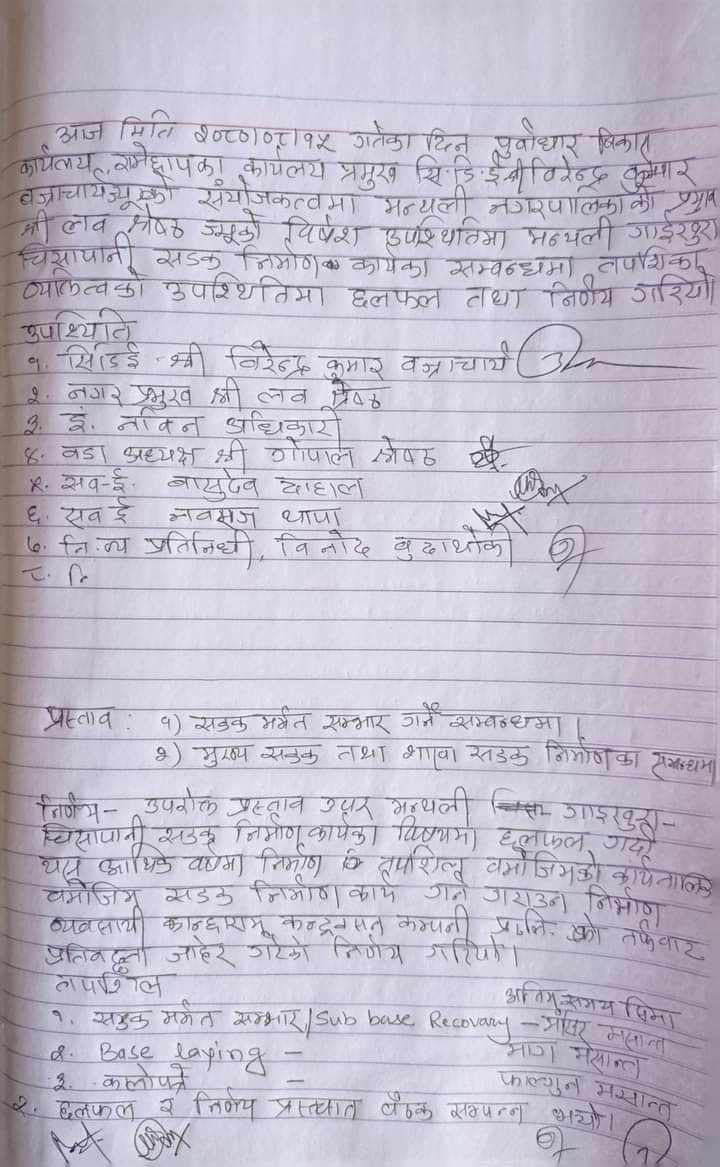 आज मिति २०८०।०८।१५ गतेका दिन पुर्वाधार विकास
कार्यलय, रामेछापका कार्यलय प्रमुख सि.डि.ई श्री विरेन्द्र कुमार
बज्राचार्यज्यूको संयोजकत्वमा मन्थली नगरपालिकाका प्रमुख
श्री लव श्रेष्ठ ज्यूको विषेश उपस्थितिमा मन्थली गाईखुरा
चिसापानी सडक निर्माण कार्यका सम्वन्धमा तपशिका
व्यक्तित्वको उपस्थितिमा छलफल तथा निर्णय गरियो।
उपस्थिति
१. सिडिई श्री विरेन्द्र कुमार वज्राचार्य
२. नगर प्रमुख श्री लव श्रेष्ठ
३. ई. नविन अधिकारी
४. वडा अध्यक्ष श्री गोपाल श्रेष्ठ
५. सव-ई. बासुदेव दाहाल
६. सव ई नवराज थापा
७. नि.व्य प्रतिनिधी, विनोद बुढाथोकी
८. नि
प्रस्ताव : १) सडक मर्मत सम्भार गर्ने सम्वन्धमा।
२) मुख्य सडक तथा शाखा सडक निर्माणका सम्बन्धमा
निर्णय- उपरोक्त प्रस्ताव उपर मन्थली गाइखुरा-
चिसापानी सडक निर्माण कार्यका विषयमा छलफल गर्दा
यस आर्थिक वर्षमा निर्माण तपशिल वमोजिमको कार्यतालिका
वमोजिम सडक निर्माण कार्य गर्न गराउन निर्माण
व्यवसायी कान्छाराम कन्ट्रक्सन कम्पनी प्रा.लि. को तर्फवाट
प्रतिवद्धता जाहेर गरेको निर्णय गरियो।
तपशिल
अन्तिम समय सिमा
१. सडक मर्मत सम्भार/Sub base Recovary - मंसिर मसान्त
२. Base laying - माघ मसान्त
३. कालोपत्रे - फाल्गुन मसान्त
२. छलफल र निर्णय प्रस्चात बैठक सम्पन्न भयो।